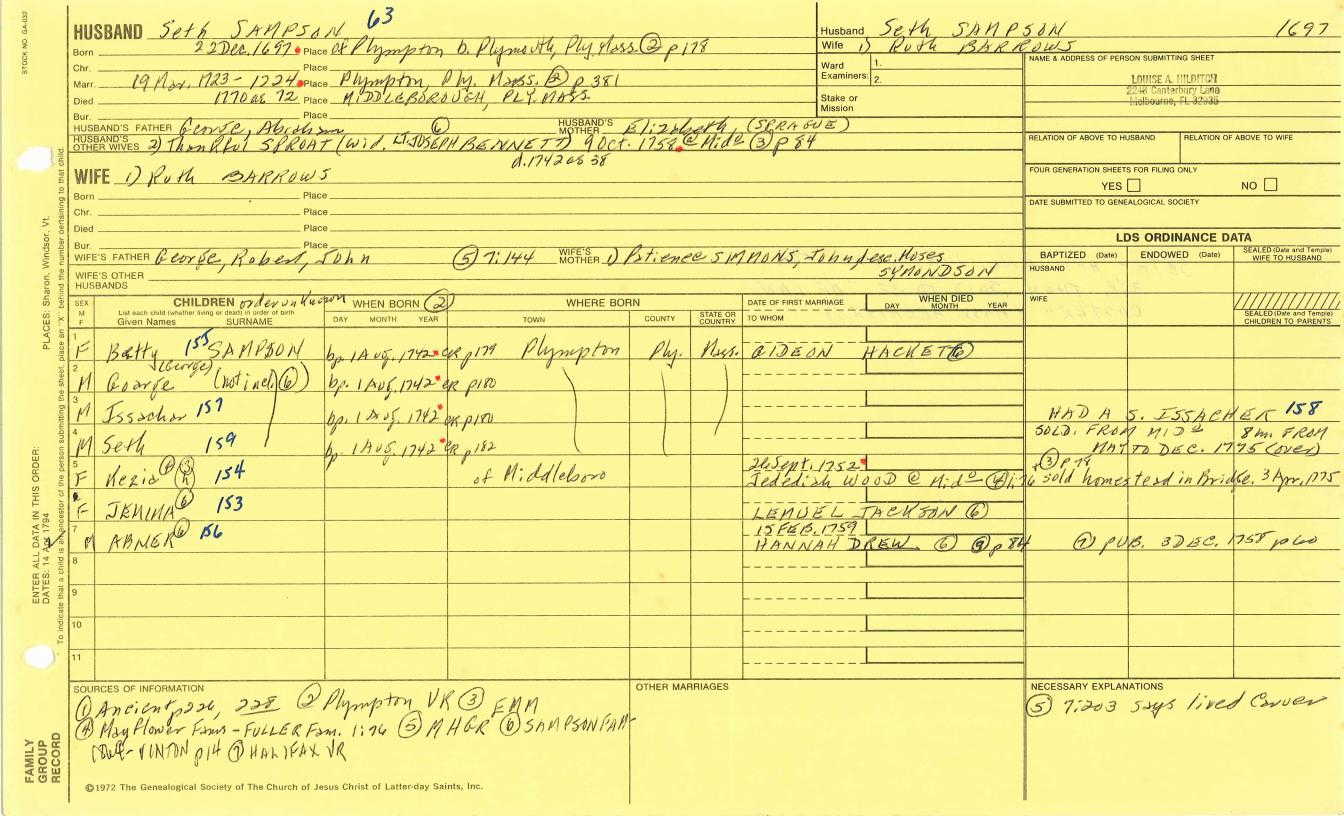 STOCK NO. GA-033
HUSBAND Seth SAMPSON 63
Born 22 Dec. 1697 Place of Plympton b. Plymouth, Ply. Mass. (2) p 178
Chr. Place
Marr. 19 Mar. 1723-1724 Place Plympton, Ply. Mass. (2) p 381
Died 1770 ae 72 Place MIDDLEBOROUGH, PLY. MASS.
Bur. Place
HUSBAND'S FATHER George, Abraham (6) HUSBAND'S MOTHER Elizabeth (SPRAGUE)
HUSBAND'S OTHER WIVES 2) Thankful SPROAT (wid. LT. JOSEPH BENNETT) 9 Oct. 1759 @ Mido (3) p 84
d. 1742 ae 38
WIFE 1) Ruth BARROWS
Born Place
Chr. Place
Died Place
Bur. Place
WIFE'S FATHER George, Robert, John (5) 7:144 WIFE'S MOTHER 1) Patience SIMMONS, John, Moses
SYMONDSON
WIFE'S OTHER HUSBANDS
Husband Seth SAMPSON 1697
Wife 1) Ruth BARROWS
Ward Examiners: 1.
2.
Stake or Mission
NAME & ADDRESS OF PERSON SUBMITTING SHEET
LOUISE A. HILDITCH
2248 Canterbury Lane
Melbourne, FL 32935
RELATION OF ABOVE TO HUSBAND RELATION OF ABOVE TO WIFE
FOUR GENERATION SHEETS FOR FILING ONLY
YES NO
DATE SUBMITTED TO GENEALOGICAL SOCIETY
LDS ORDINANCE DATA
BAPTIZED (Date) ENDOWED (Date) SEALED (Date and Temple) WIFE TO HUSBAND
HUSBAND
WIFE
SEALED (Date and Temple) CHILDREN TO PARENTS
SEX M F CHILDREN order unknown WHEN BORN (2) WHERE BORN DATE OF FIRST MARRIAGE WHEN DIED
List each child (whether living or dead) in order of birth
Given Names SURNAME DAY MONTH YEAR TOWN COUNTY STATE OR COUNTRY TO WHOM DAY MONTH YEAR
1 F Betty 155 SAMPSON bp. 1 Aug. 1742 CR p179 Plympton Ply. Mass. GIDEON HACKETT (6)
(George)
2 M George (not incl. (6)) bp. 1 Aug. 1742 CR p180
3 M Issachar 157 bp. 1 Aug. 1742 CR p180 HAD A S. ISSACHER 158
4 M Seth 159 bp. 1 Aug. 1742 CR p182 SOLD. FROM MIDo 8 m. FROM
MAY TO DEC. 1775 (over)
5 F Kezia (4) (3) 154 of Middleboro 26 Sept. 1752 (3) p 79
Jedediah WOOD @ Mido (4) 1:76 sold homestead in Bridge. 3 Apr. 1775
6 F JEMIMA (6) 153 LEMUEL JACKSON (6)
7 M ABNER (6) 156 15 FEB. 1759
HANNAH DREW (6) p 84 (7) PUB. 3 DEC. 1758 p 60
8
9
10
11
SOURCES OF INFORMATION
(1) Ancient p 226, 228 (2) Plympton VR (3) EMM
(4) Mayflower Fams - FULLER Fam. 1:76 (5) MHGR (6) SAMPSON FAM-
VINTON p 14 (7) HALIFAX VR
OTHER MARRIAGES
NECESSARY EXPLANATIONS
(5) 7:203 says lived Carver
©1972 The Genealogical Society of The Church of Jesus Christ of Latter-day Saints, Inc.
FAMILY GROUP RECORD
ENTER ALL DATA IN THIS ORDER:
DATES: 14 Apr 1794
PLACES: Sharon, Windsor, Vt.
To indicate that a child is an ancestor of the person submitting the sheet, place an "X" behind the number pertaining to that child.